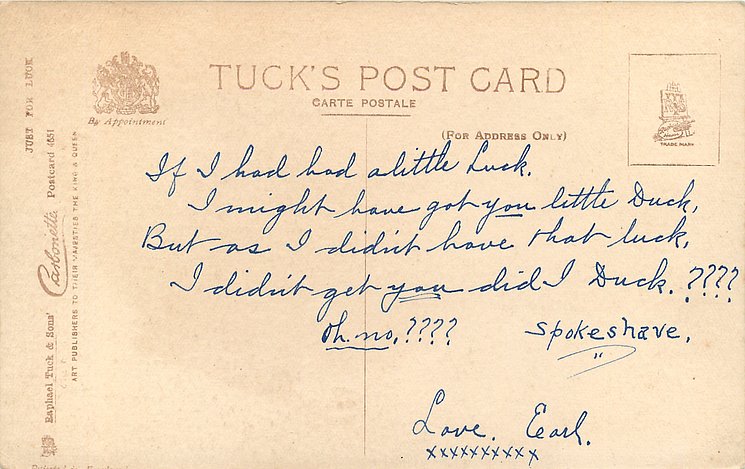 TUCK'S POST CARD
CARTE POSTALE
By Appointment
(FOR ADDRESS ONLY)
TRADE MARK
JUST FOR LUCK
Raphael Tuck & Sons' Carbonette Postcard 4651
ART PUBLISHERS TO THEIR MAJESTIES THE KING & QUEEN
If I had had a little Luck.
I might have got you little Duck,
But as I didn't have that luck,
I didn't get you did I Duck. ????
Oh. no. ????
Spokeshave.
Love. Earl.
xxxxxxxxxx